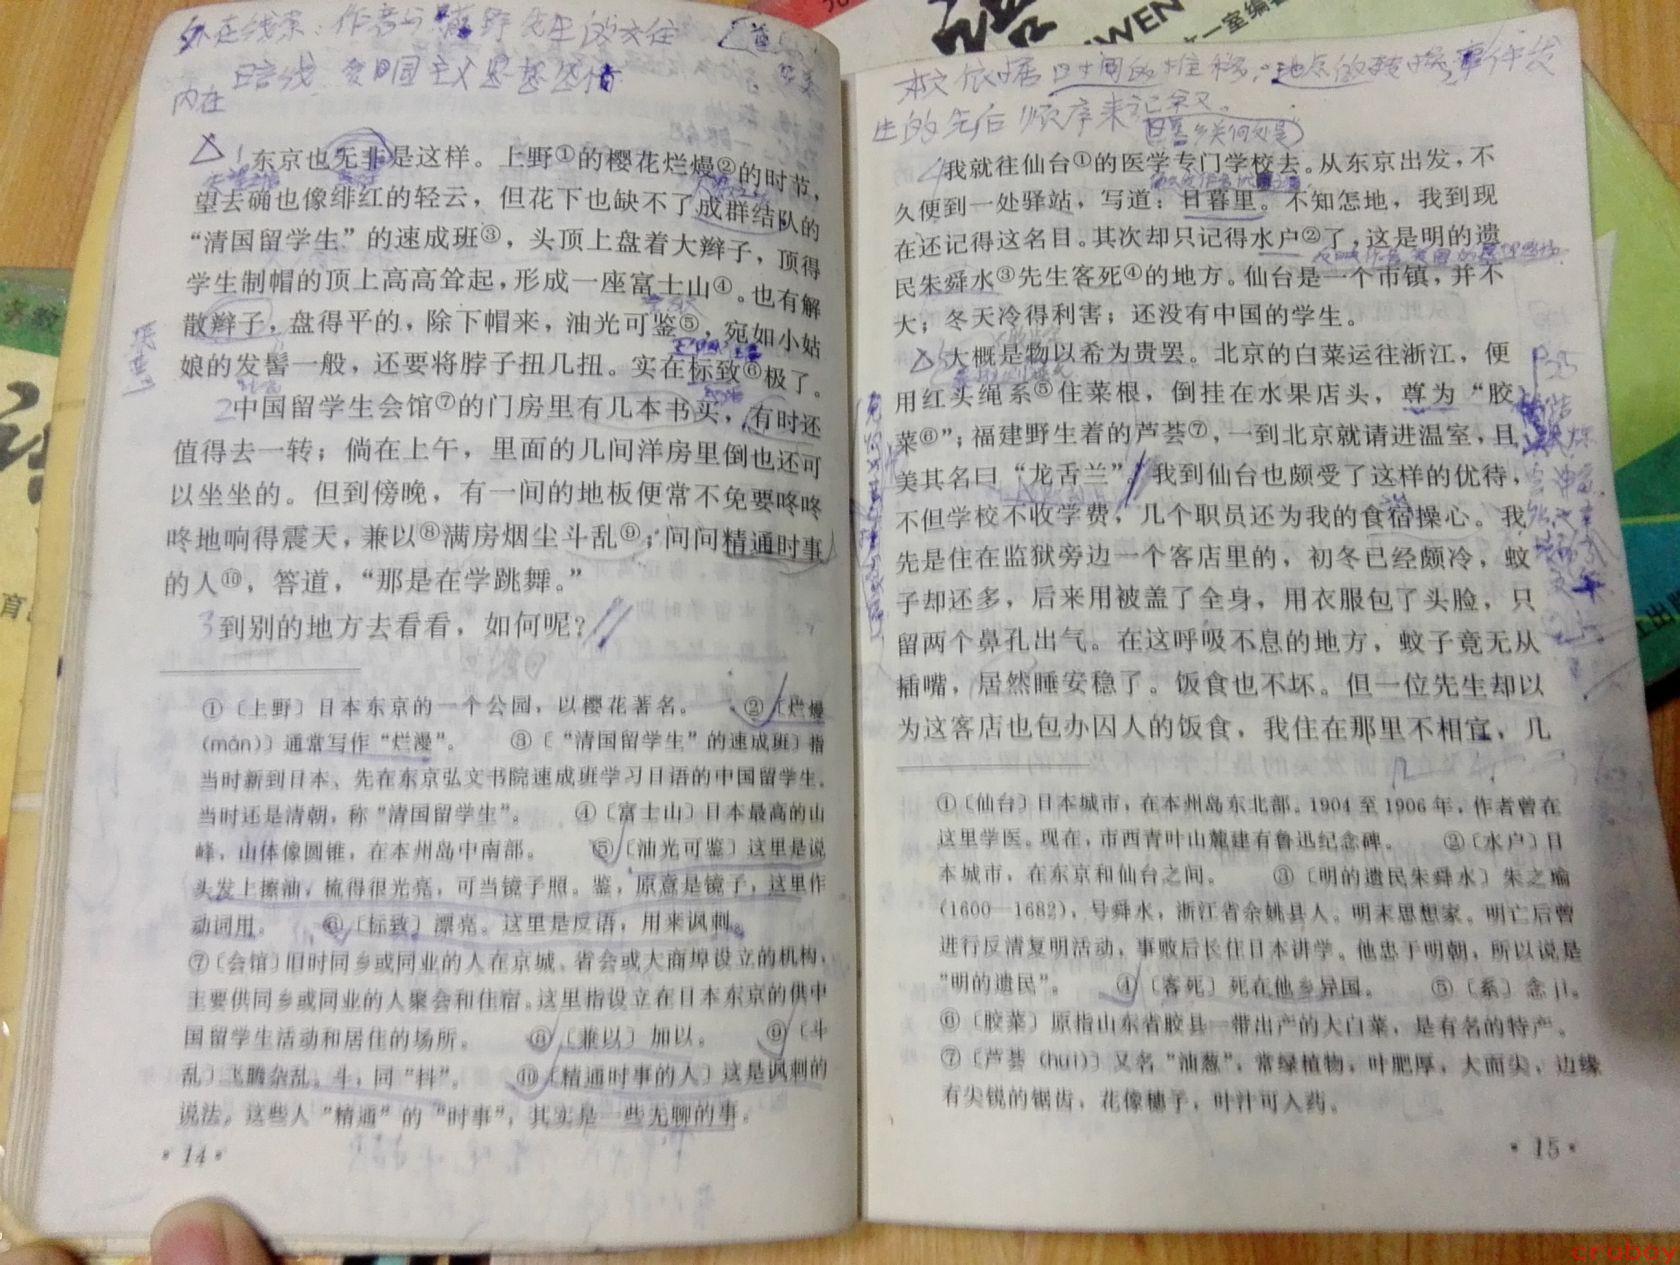 外在线索：作者与藤野先生的交往
内在 暗线 爱国主义思想感情
1东京也无非是这样。上野①的樱花烂熳②的时节，
望去确也像绯红的轻云，但花下也缺不了成群结队的
“清国留学生”的速成班③，头顶上盘着大辫子，顶得
学生制帽的顶上高高耸起，形成一座富士山④。也有解
散辫子，盘得平的，除下帽来，油光可鉴⑤，宛如小姑
娘的发髻一般，还要将脖子扭几扭。实在标致⑥极了。
2中国留学生会馆⑦的门房里有几本书买，有时还
值得去一转；倘在上午，里面的几间洋房里倒也还可
以坐坐的。但到傍晚，有一间的地板便常不免要咚咚
咚地响得震天，兼以⑧满房烟尘斗乱⑨；问问精通时事
的人⑩，答道，“那是在学跳舞。”
3到别的地方去看看，如何呢？
①〔上野〕日本东京的一个公园，以樱花著名。 ②〔烂熳
(màn)〕通常写作“烂漫”。 ③〔“清国留学生”的速成班〕指
当时新到日本、先在东京弘文书院速成班学习日语的中国留学生。
当时还是清朝，称“清国留学生”。 ④〔富士山〕日本最高的山
峰，山体像圆锥，在本州岛中南部。 ⑤〔油光可鉴〕这里是说
头发上擦油，梳得很光亮，可当镜子照。鉴，原意是镜子，这里作
动词用。 ⑥〔标致〕漂亮。这里是反语，用来讽刺。
⑦〔会馆〕旧时同乡或同业的人在京城、省会或大商埠设立的机构，
主要供同乡或同业的人聚会和住宿。这里指设立在日本东京的供中
国留学生活动和居住的场所。 ⑧〔兼以〕加以。 ⑨〔斗
乱〕飞腾杂乱。斗，同“抖”。 ⑩〔精通时事的人〕这是讽刺的
说法。这些人“精通”的“时事”，其实是一些无聊的事。
·14·
本文依据时间的推移，地点的转换，事件发
生的先后顺序来记叙。
日暮乡关何处是
4我就往仙台①的医学专门学校去。从东京出发，不
久便到一处驿站，写道：日暮里。不知怎地，我到现
在还记得这名目。其次却只记得水户②了，这是明的遗
民朱舜水③先生客死④的地方。仙台是一个市镇，并不
大；冬天冷得利害；还没有中国的学生。
大概是物以希为贵罢。北京的白菜运往浙江，便
用红头绳系⑤住菜根，倒挂在水果店头，尊为“胶
菜⑥”；福建野生着的芦荟⑦，一到北京就请进温室，且
美其名曰“龙舌兰”。我到仙台也颇受了这样的优待，
不但学校不收学费，几个职员还为我的食宿操心。我
先是住在监狱旁边一个客店里的，初冬已经颇冷，蚊
子却还多，后来用被盖了全身，用衣服包了头脸，只
留两个鼻孔出气。在这呼吸不息的地方，蚊子竟无从
插嘴，居然睡安稳了。饭食也不坏。但一位先生却以
为这客店也包办囚人的饭食，我住在那里不相宜，几
①〔仙台〕日本城市，在本州岛东北部。1904至1906年，作者曾在
这里学医。现在，市西青叶山麓建有鲁迅纪念碑。 ②〔水户〕日
本城市，在东京和仙台之间。 ③〔明的遗民朱舜水〕朱之瑜
(1600—1682)，号舜水，浙江省余姚县人。明末思想家。明亡后曾
进行反清复明活动，事败后长住日本讲学。他忠于明朝，所以说是
“明的遗民”。 ④〔客死〕死在他乡异国。 ⑤〔系〕念jì。
⑥〔胶菜〕原指山东省胶县一带出产的大白菜，是有名的特产。
⑦〔芦荟(huì)〕又名“油葱”，常绿植物，叶肥厚，大而尖，边缘
有尖锐的锯齿，花像穗子，叶汁可入药。
·15·
一室编